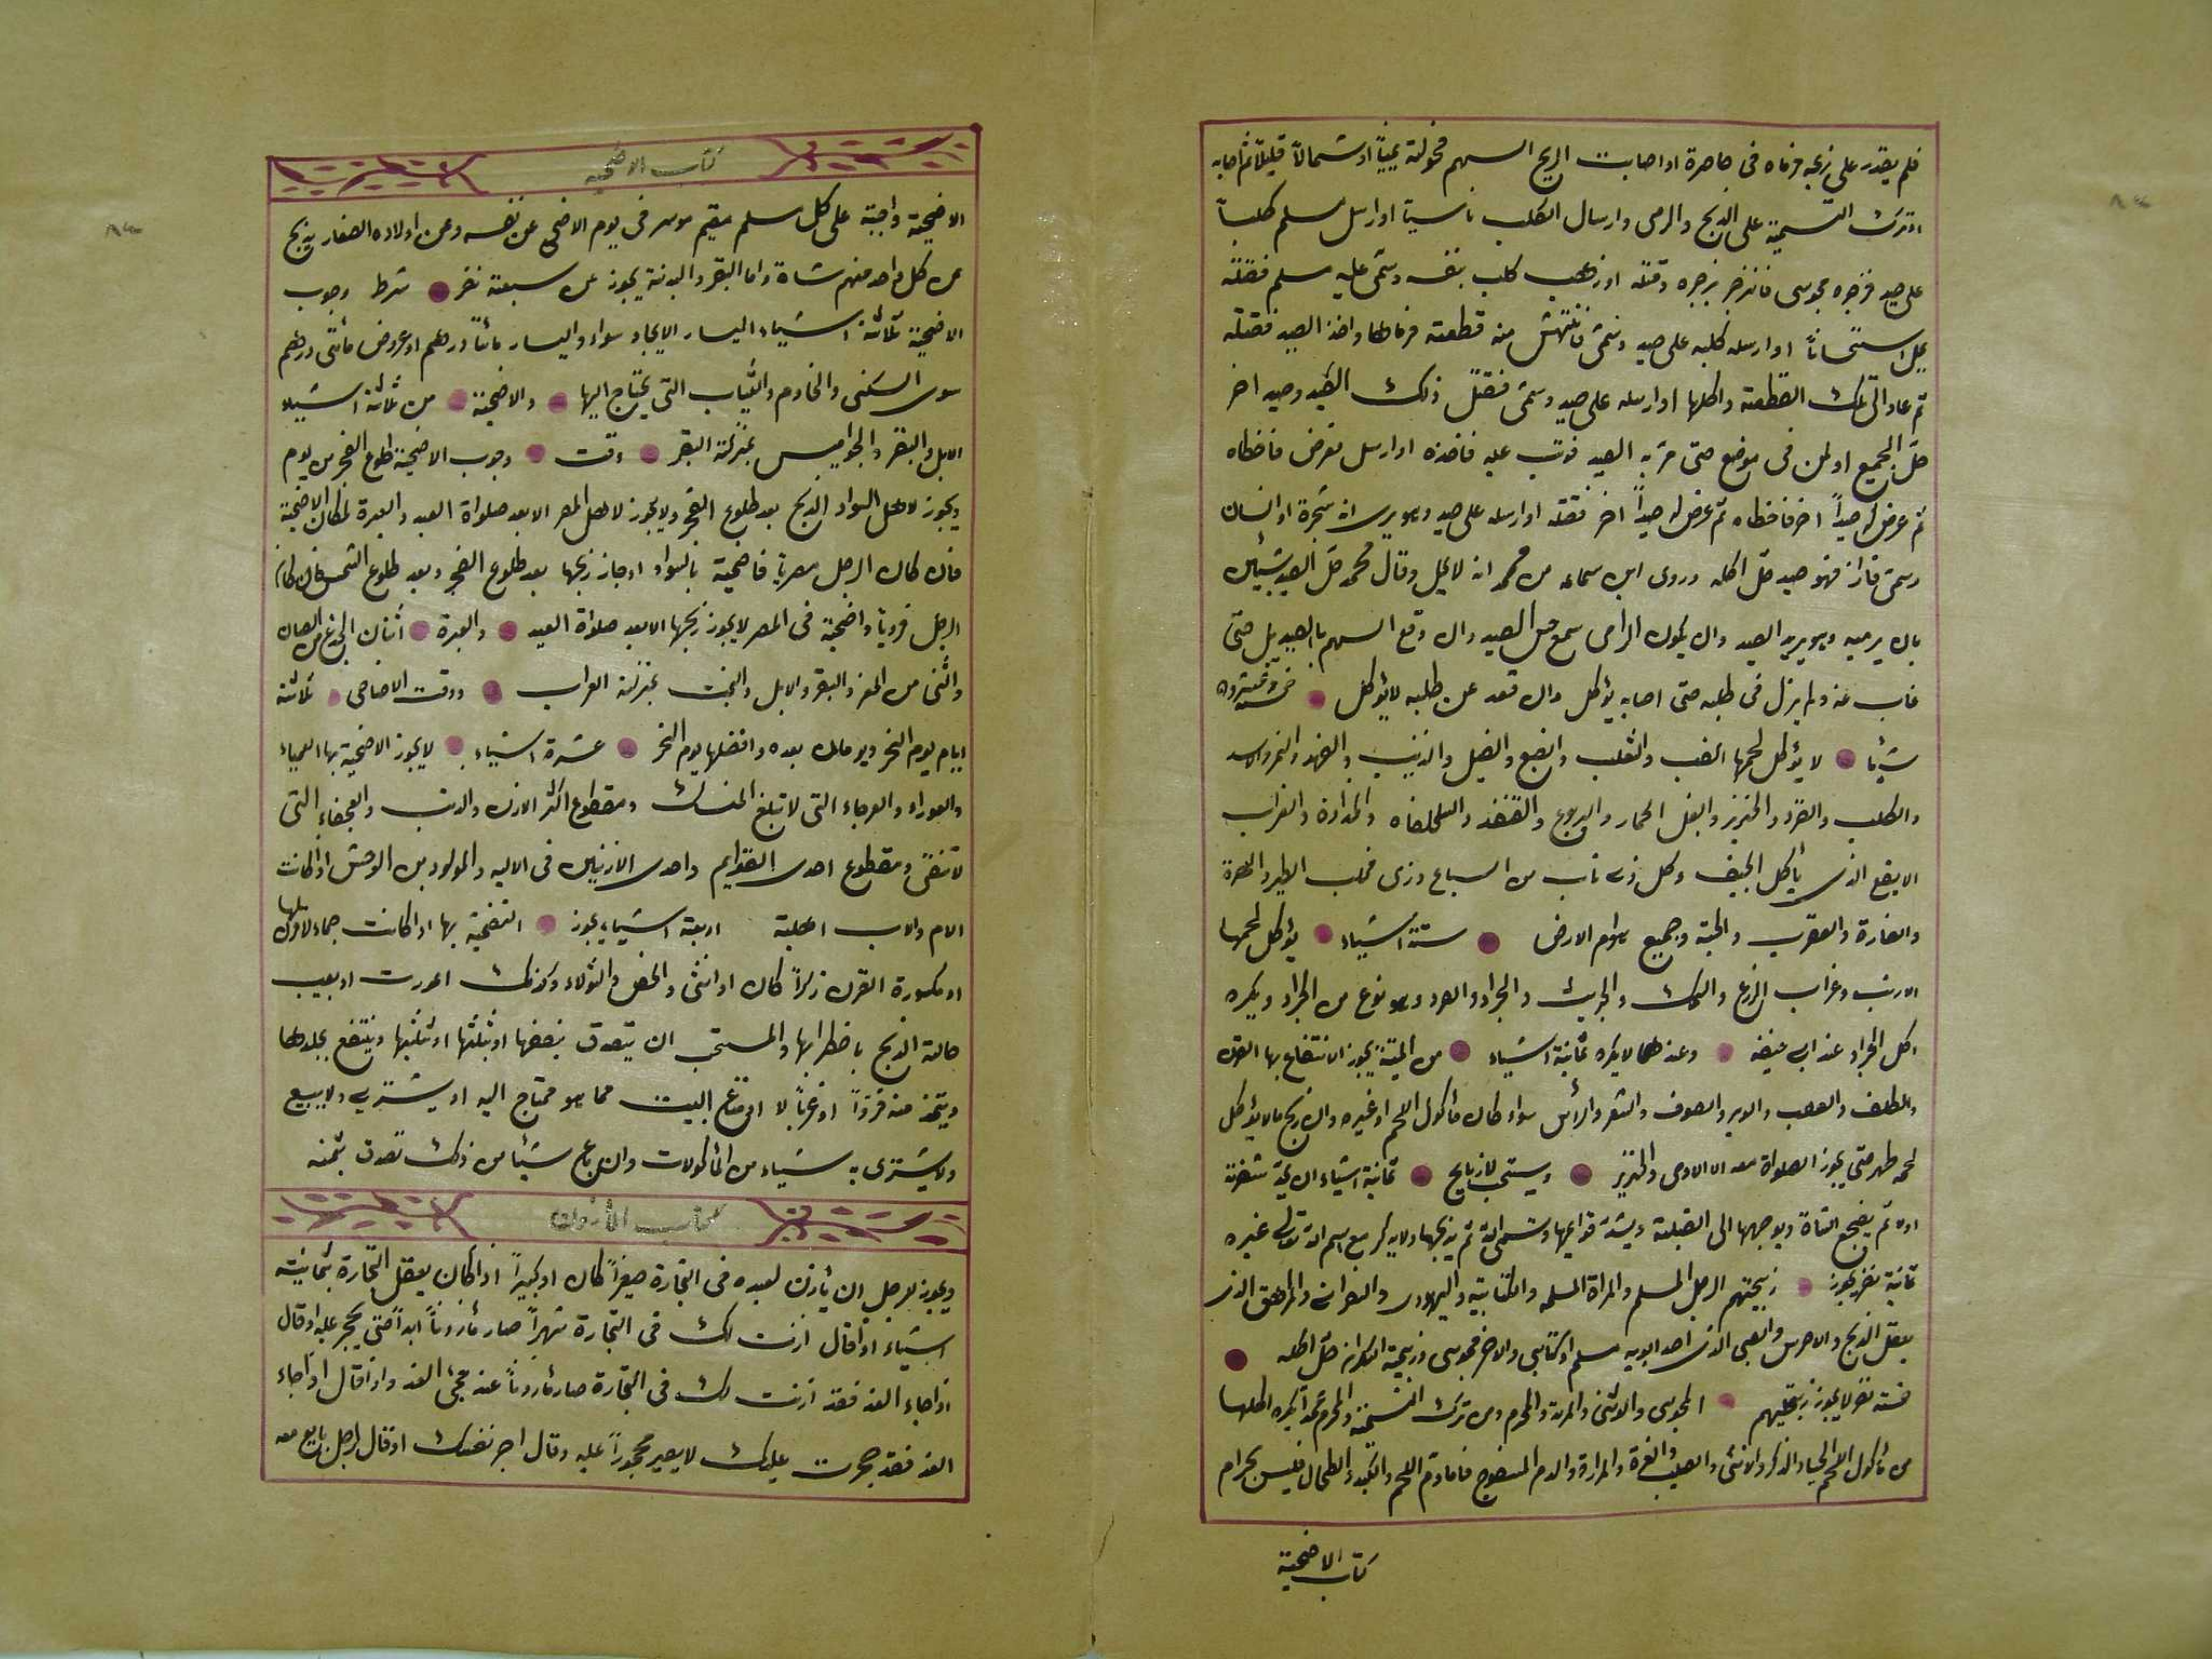 فلم يقدر على ذبحه فرماه فى خاصرة او اصابت الريح السهم فحولته يميناً او شمالاً قليلاً ثم اصابه
او ترك التسمية على الذبح والرمى وارسال الكلب ناسيتا او ارسل مسلم كلباً
على صيد فزجره مجوسى فانزجر بزجره وقتله او ذهب كلب بنفسه وسمى عليه مسلم فقتله
يحل استحساناً او ارسله كلبه على صيد وسمى فانتهش منه قطعته فرماها واخذ الصيد فقتله
ثم عاد الى تلك القطعته واكلها او ارسله على صيد وسمى فقتل ذلك الصيد وصيد اخر
حل الجميع او لمن فى موضع حتى مرّ به الصيد فوثب عليه فاخذه او ارسل فعرض فاخطاه
ثم عرض له صيداً اخر فاخطاه ثم عرض له صيداً اخر فقتله او ارسله على صيد وهو يرى انه شجرة او انسان
وسمى فاذا فهو صيد حل اكله وروى ابن سماعه من محمد انه لا يحل وقال محمد حل الصيد بشيئين
بان يرميه وهو يريد الصيد وان يكون الرامى سمع حس الصيد وان وقع السهم بالصيد حتى
غاب عنه ولم يزل فى طلبه حتى اصابه يؤكل وان قعد عن طلبه لا يؤكل خمسة وعشرون
شيئا لا يؤكل لحمها الضب والثعلب والضبع والفيل والذئب والفهد والنمر والاسد
والكلب والقرد والخنزير والبغل الحمار واليربوع والقنفذ والسلحفاه والحداءة والغراب
الابقع الذى يأكل الجيف وكل ذى ناب من السباع وذى مخلب الطير والهرة
والفارة والعقرب والحية وجميع هوام الارض ستة اشياء يؤكل لحمها
الارنب وغراب الزرع والسمك والجريث والجراد والصرد وهو نوع من الجراد ويكره
اكل الجراد عند ابى حنيفه وعندهما لا يكره ثمانية اشياء من الميتة يجوز الانتفاع بها القرن
والظلف والعصب والوبر والصوف والشعر والرأس سواء كان مأكول اللحم او غيره وان ذبح ما لا يؤكل
لحمه طهر حتى يجوز الصلواة معه الا الادمى والخنزير ويستحب للذبايح ثمانية اشياء ان يحد شفرته
اولا ثم يضجع الشاة ويوجهها الى القبلة ويشد قوايمها ويسمى الله ثم يذبحها ولا يذكر مع اسم الله تعالى غيره
ثمانية نفر يجوز ذبيحتهم الرجل المسلم والمراة المسلمه والكتابيه واليهودى والنصرانى والمراهق الذى
يعقل الذبح والاخرس والصبى الذى احد ابويه مسلم او كتابى والاخر مجوسى وذبيحة السكران حل اكله
خمسة نفر لا يجوز ذبيحتهم المجوسى والوثنى والمرتد والمحرم ومن ترك التسمية والمحرم عمداً يكره اكلها
من مأكول اللحم الحياء والذكر والانثى والصلب والغرة والمرارة والدم المسفوح فاما دم اللحم والكبد والطحال فليس بحرام
كتاب الاضحية
كتاب الاضحيه
الاضحية واجبة على كل مسلم مقيم موسر فى يوم الاضحى عن نفسه وعن اولاده الصغار يذبح
عن كل واحد منهم شاة واما البقر والبدنة يجوز عن سبعة نفر شرط وجوب
الاضحية ثلاثة اشياء اليسار الايجاد سواء واليسار مائتا درهم او عروض مأتى درهم
سوى السكنى والخادم والثياب التى يحتاج اليها والاضحية من ثلاثة اشياء
الابل والبقر والجواميس بمنزلة البقر وقت وجوب الاضحية طلوع الفجر من يوم
ويجوز لاهل السواد الذبح بعد طلوع الفجر ولا يجوز لاهل المصر الا بعد صلواة العيد والعبرة لمكان الاضحية
فان كان الرجل مصريا فاضحية بالسواد او جاز ذبحها بعد طلوع الفجر وبعد طلوع الشمس فان كان
الرجل قروياً واضحية فى المصر لا يجوز ذبحها الا بعد صلواة العيد والعبرة اثنان الجذع من الضان
والثنى من المعز والبقر والابل والبخت بمنزلة العراب ووقت الاضاحى ثلاثة
ايام يوم النحر ويومان بعده وافضلها يوم النحر عشرة اشياء لا يجوز الاضحية بها العمياء
والعوراء والعرجاء التى لا تبلغ المنسك ومقطوع اكثر الاذن والذنب والعجفاء التى
لا تنقى ومقطوع احدى القوايم واحدى الاذنين فى الاليه والمولود من الوحش اذا كانت
الام والاب اهلية اربعة اشياء يجوز التضحية بها اذا كانت جماء لا قرن لها
او مكسورة القرن ذكراً كان او انثى والخصى والثولاء وكذلك اعورت او بعيب
حالة الذبح باضطرابها والمستحب ان يتصدق ببعضها او بثلثها او بثلثيها وينتفع بجلدها
ويتخذ منه فرواً او غربالا او متاع البيت مما هو محتاج اليه او يشترى ولا يبيع
ولا يشترى به شياء من المأكولات وان باع شيئا من ذلك تصدق بثمنه
كتاب المأذون
ويجوز للرجل ان يأذن لعبده فى التجارة صغيراً كان او كبيراً اذا كان يعقل التجارة بثمانية
اشياء اذا قال اذنت لك فى التجارة شهراً صار مأذوناً ابداً حتى يحجر عليه او قال
اذا جاء الغد فقد اذنت لك فى التجارة صار مأذوناً عند مجئ الغد واذا قال اذا جاء
الغد فقد حجرت عليك لا يصير محجوراً عليه وقال اجر نفسك او قال لرجل بايع معه